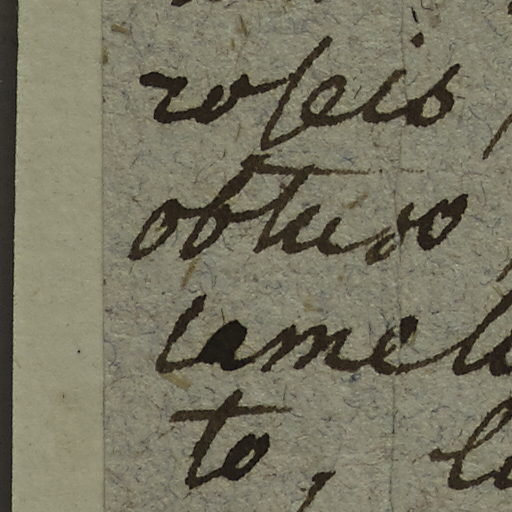 roſeis,
obtuso,
lamel
to, l